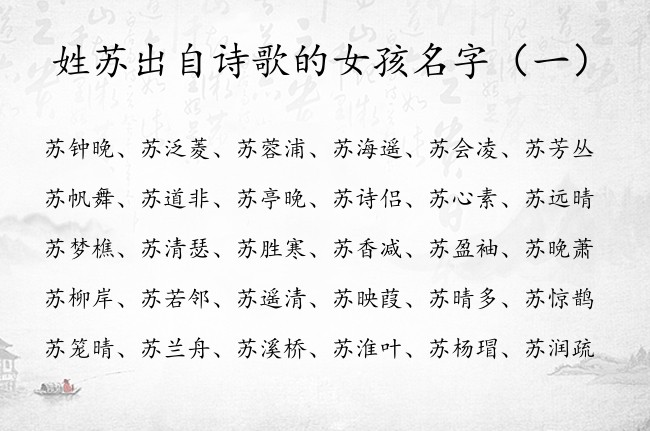 姓苏出自诗歌的女孩名字（一）
苏钟晚、苏泛菱、苏蓉浦、苏海遥、苏会凌、苏芳丛
苏帆舞、苏道非、苏亭晚、苏诗侣、苏心素、苏远晴
苏梦樵、苏清瑟、苏胜寒、苏香减、苏盈袖、苏晚萧
苏柳岸、苏若邻、苏遥清、苏映葭、苏晴多、苏惊鹊
苏笼晴、苏兰舟、苏溪桥、苏淮叶、苏杨瑁、苏润疏